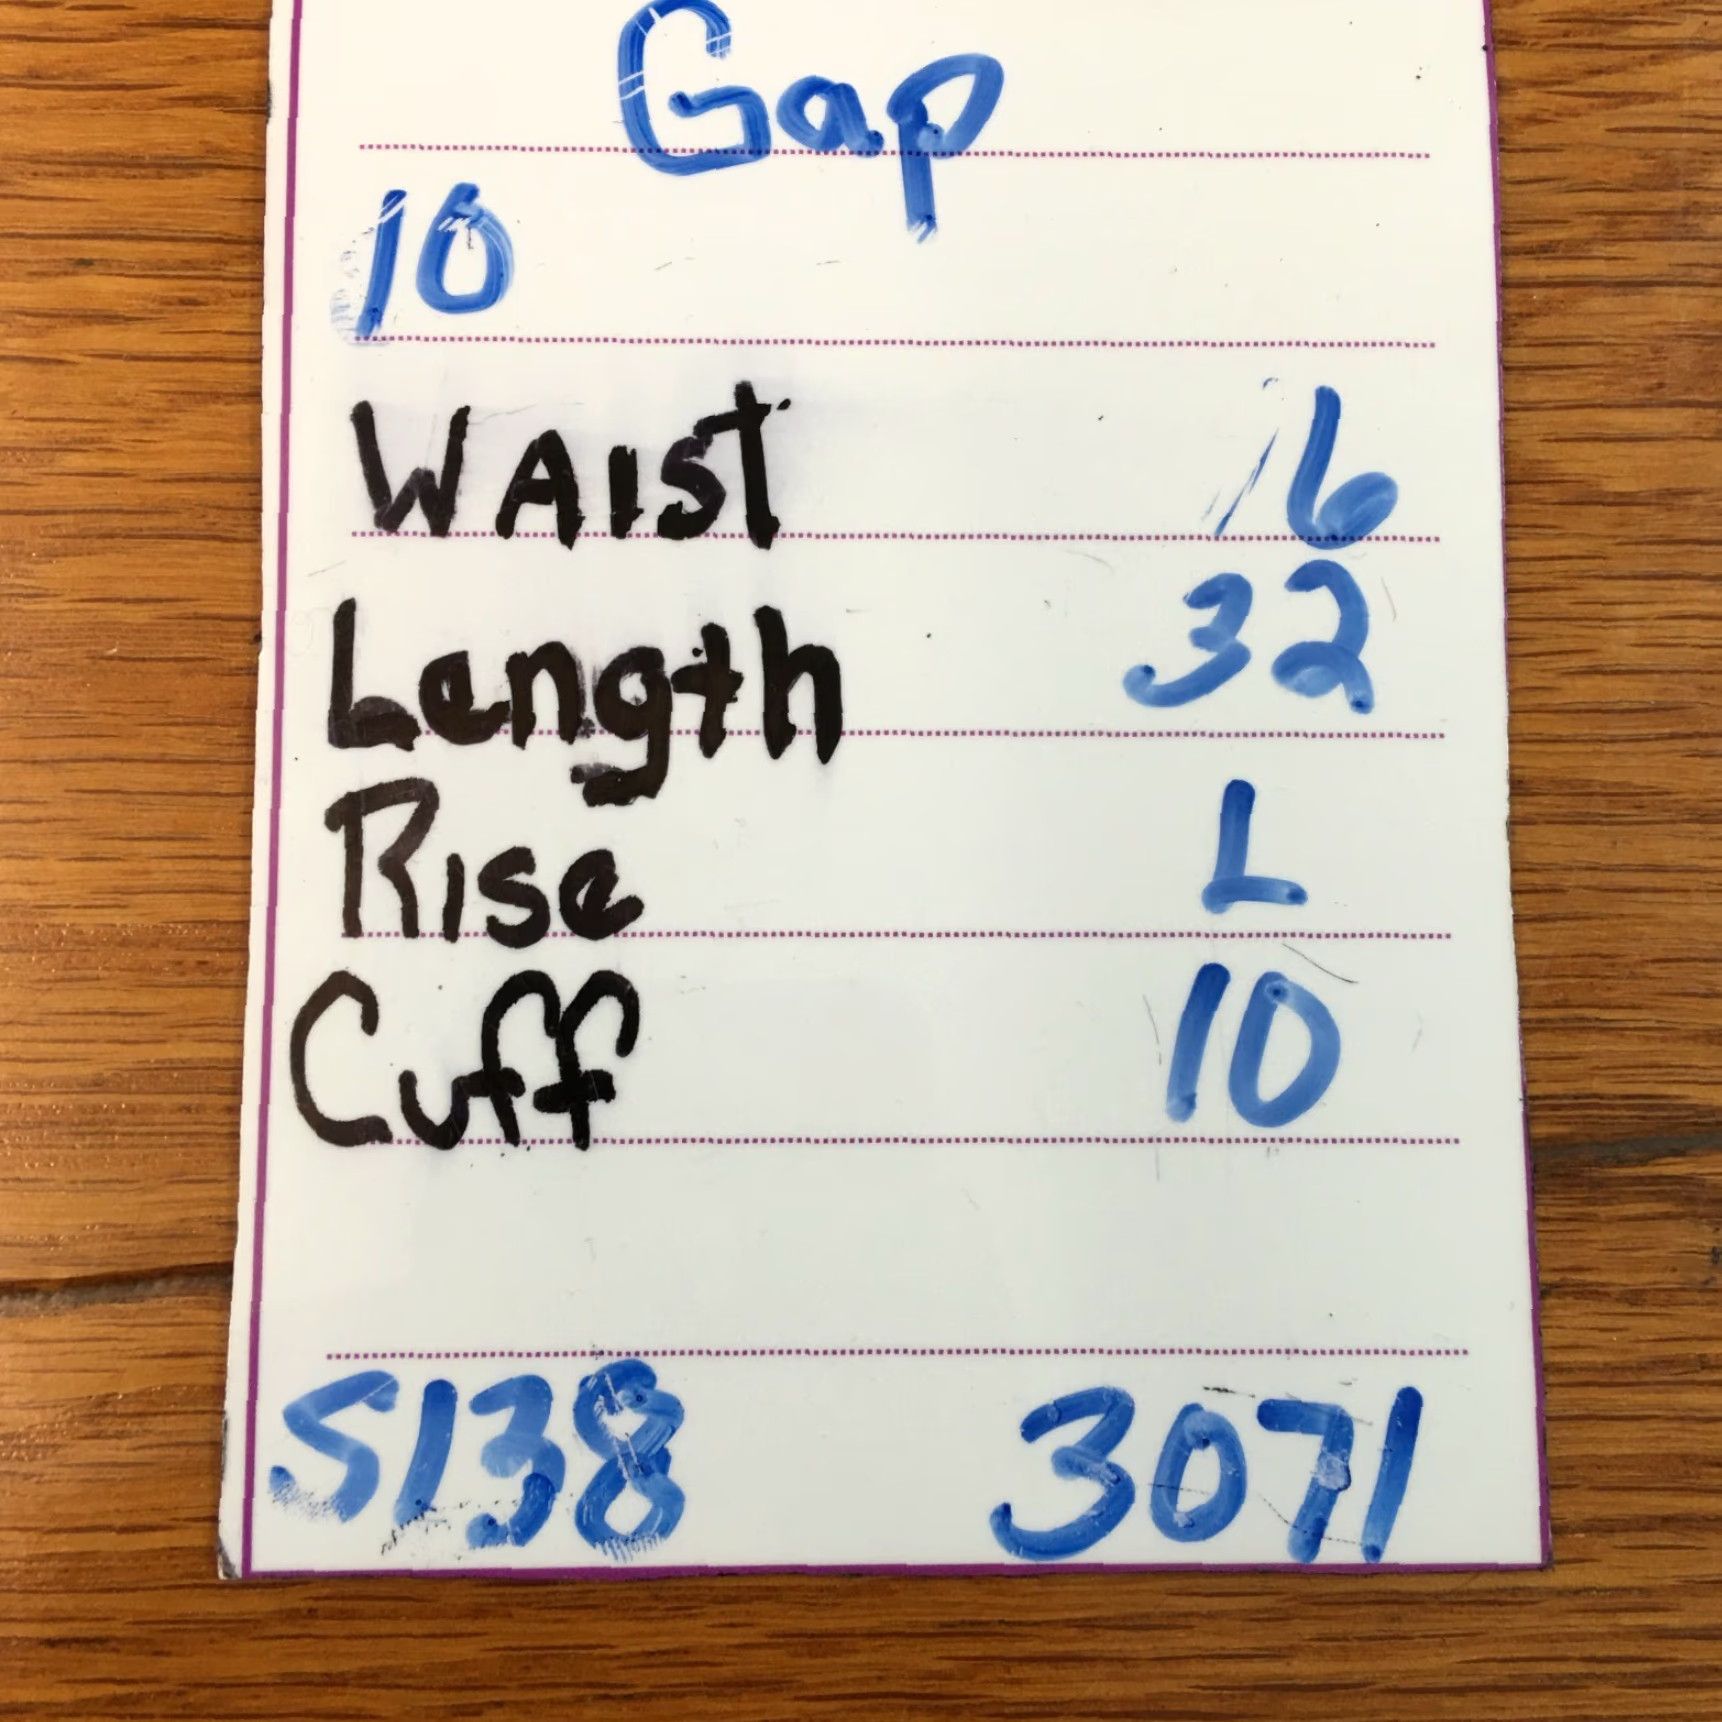 Gap
10
WAIST 16
Length 32
Rise L
Cuff 10
S138 3071